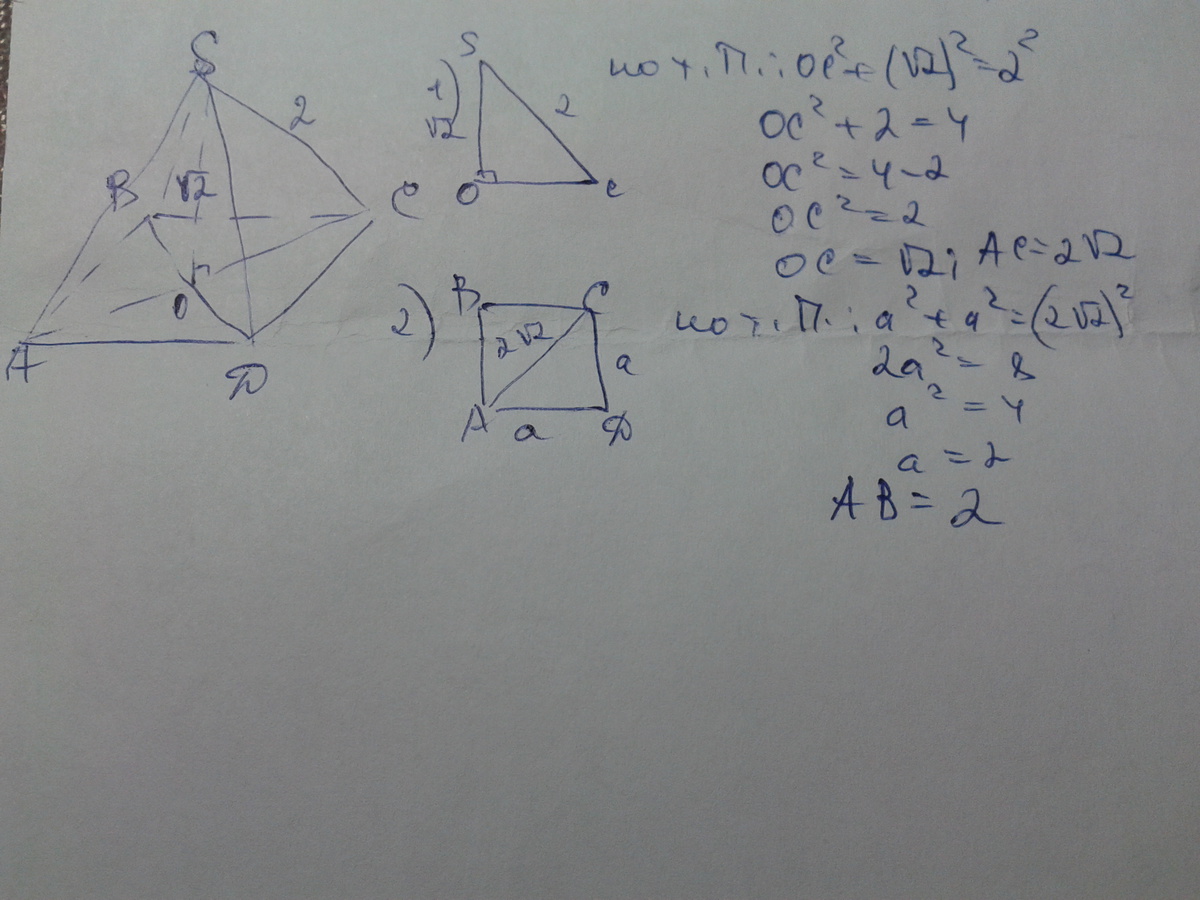 S
2
B
√2
C
O
A
D
1)
S
√2
2
O
C
по т. П.: OC² + (√2)² = 2²
OC² + 2 = 4
OC² = 4 - 2
OC² = 2
OC = √2; AC = 2√2
2)
B
C
2√2
a
A
a
D
по т. П.: a² + a² = (2√2)²
2a² = 8
a² = 4
a = 2
AB = 2